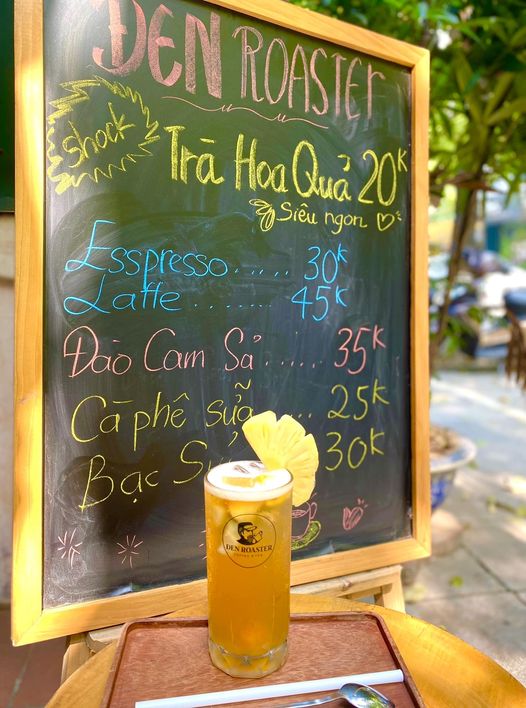 ĐEN ROASTER
Shock
Trà Hoa Quả 20K
Siêu ngon
Esspresso..... 30K
Latte ....... 45K
Đào Cam Sả..... 35K
Cà phê sữa ... 25K
Bạc 30K
ĐEN ROASTER